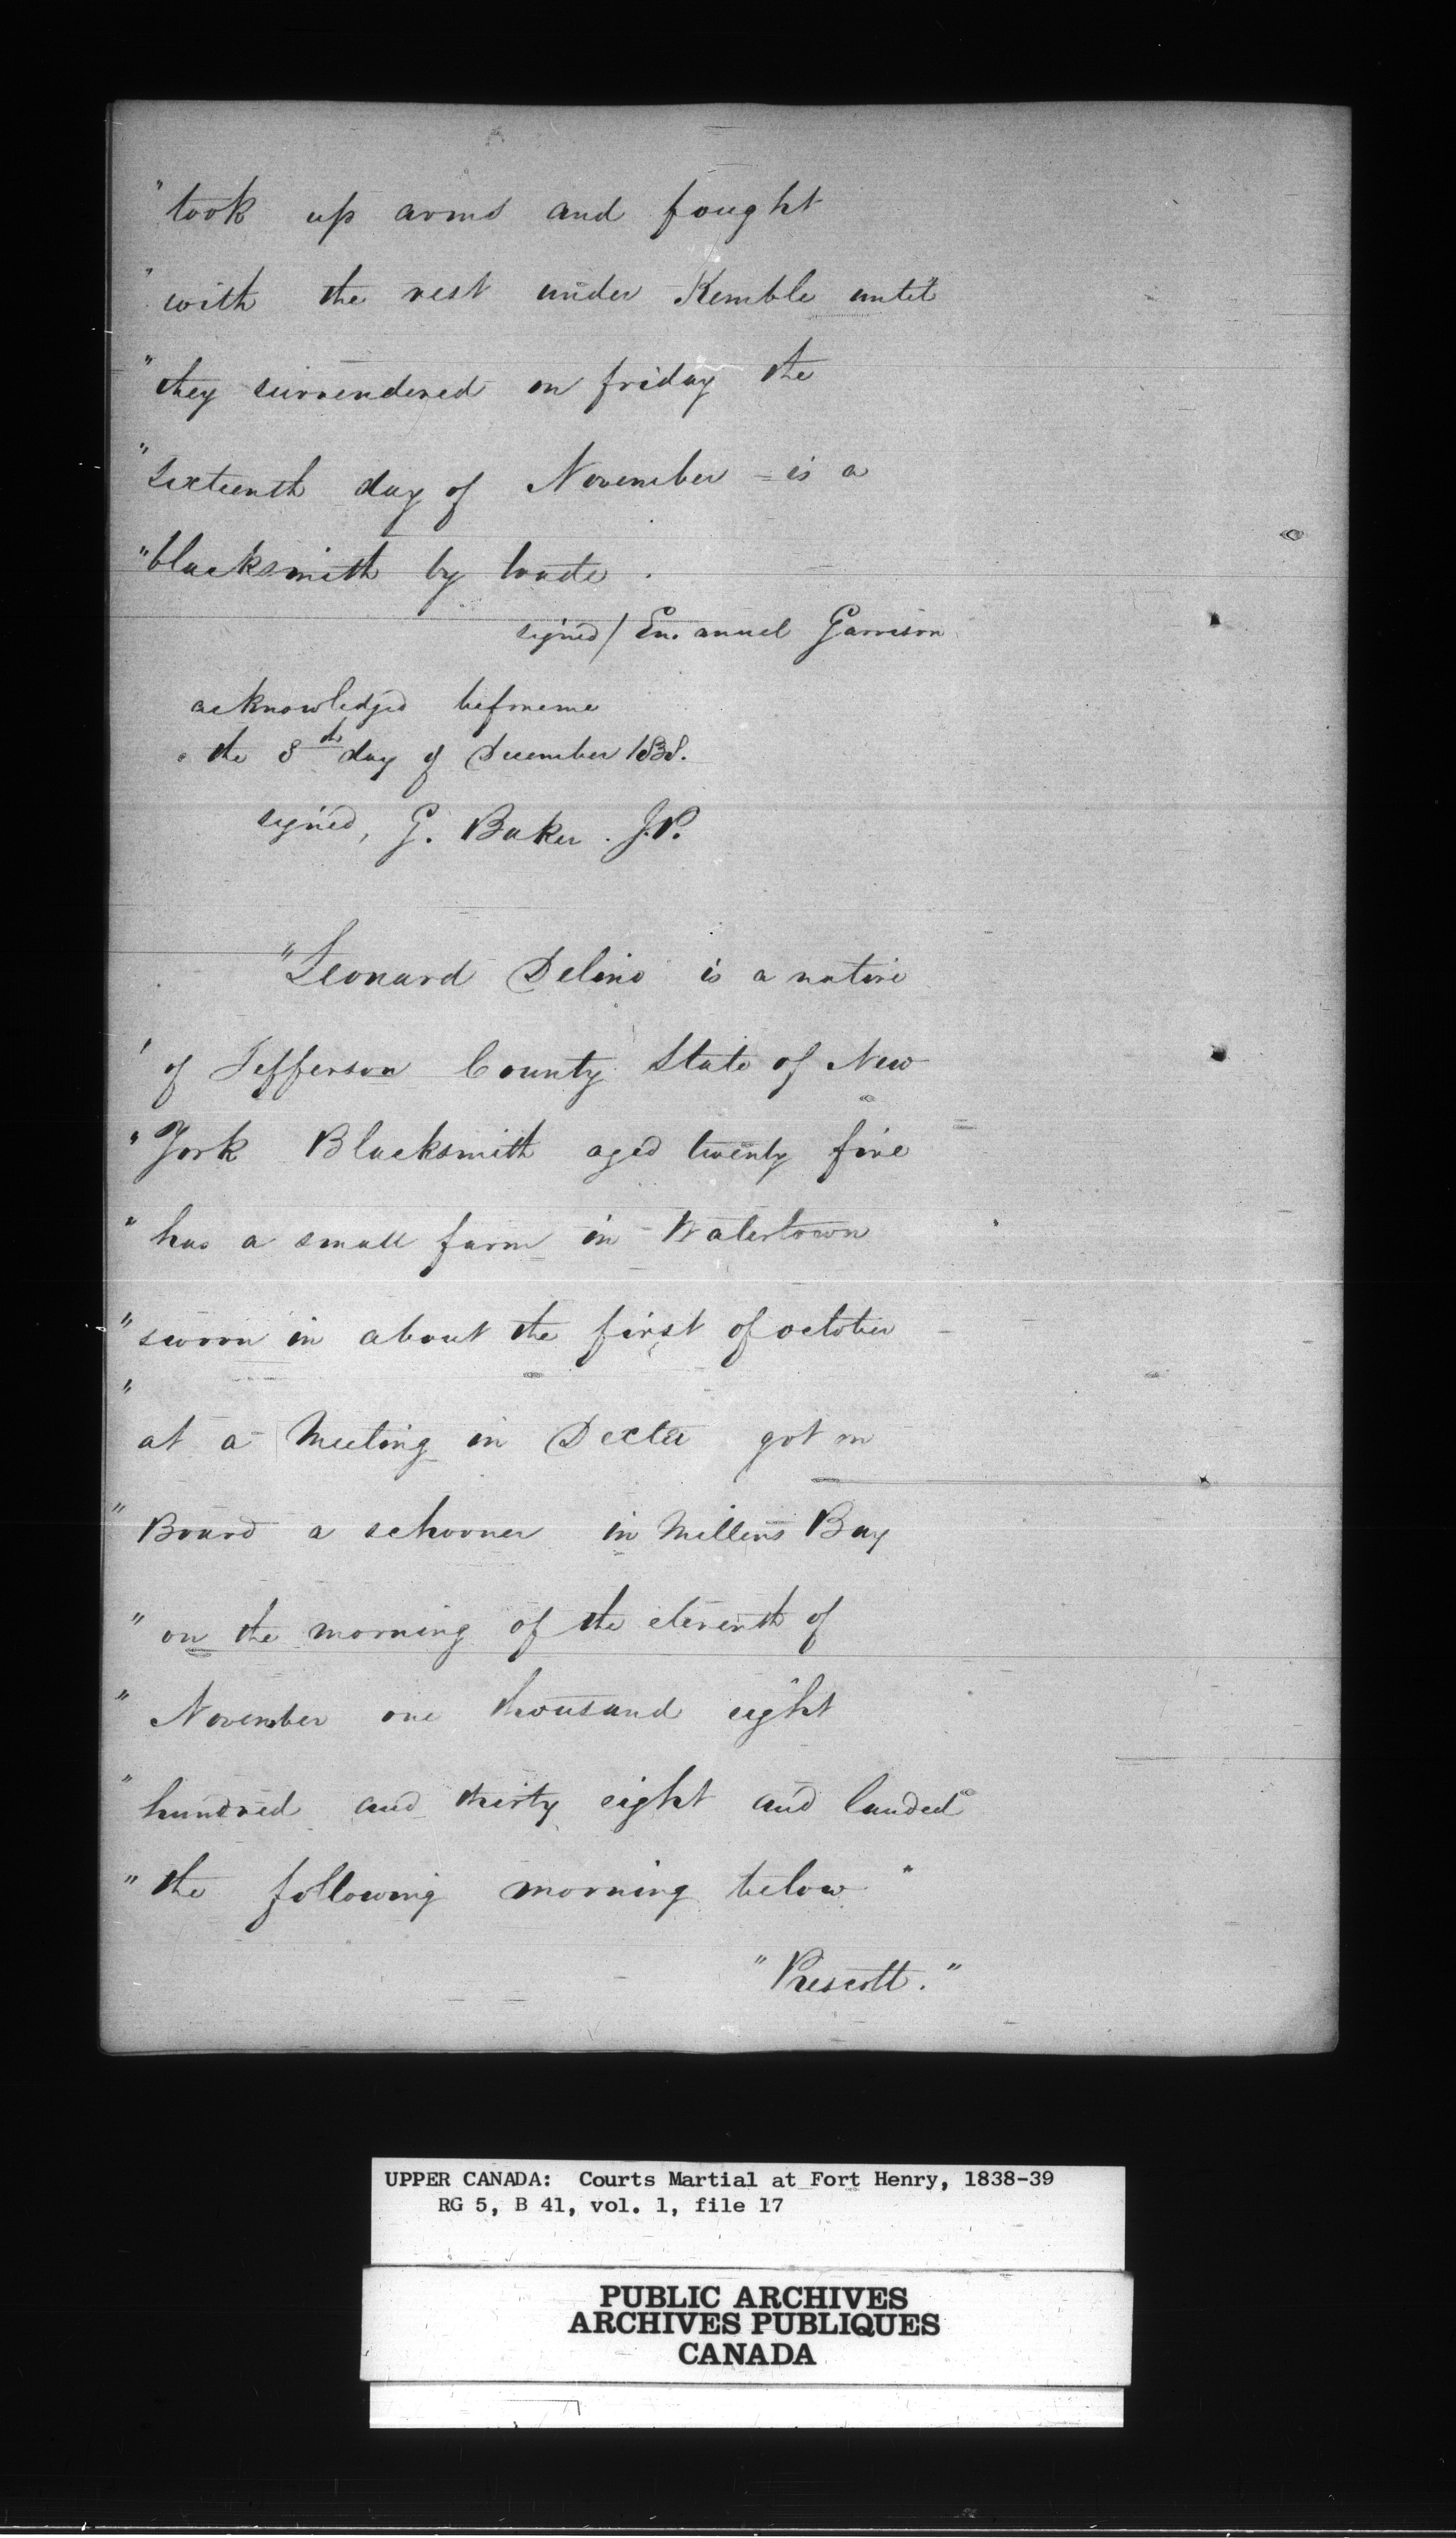 "took up arms and fought
"with the rest under Kemble until
"they surrendered on friday the
"sixteenth day of November - is a
"blacksmith by trade.
signed / Emanuel Garrison
acknowledged before me
the 8th day of December 1838.
signed, G. Baker. J.P.
"Leonard Delino is a native
' of Jefferson County State of New
"York Blacksmith aged twenty five
" has a small farm in Watertown
"sworn in about the first of october
"
at a Meeting in Dexter got on
"Board a schooner in Millens Bay
" on the morning of the eleventh of
" November one thousand eight
"hundred and thirty eight and landed
"the following morning below"
"Prescott."
UPPER CANADA: Courts Martial at Fort Henry, 1838-39
RG 5, B 41, vol. 1, file 17
PUBLIC ARCHIVES
ARCHIVES PUBLIQUES
CANADA